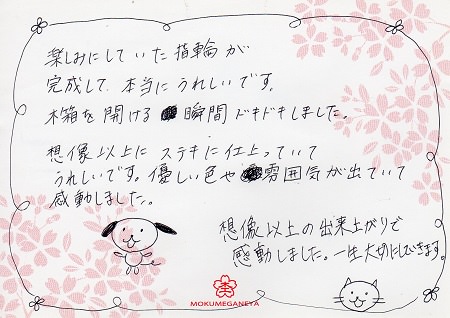 楽しみにしていた指輪が
完成して、本当にうれしいです。
木箱を開ける瞬間ドキドキしました。
想像以上にステキに仕上っていて
うれしいです。優しい色や雰囲気が出ていて
感動しました。
想像以上の出来上がりで
感動しました。一生大切にしていきます。
MOKUMEGANEYA